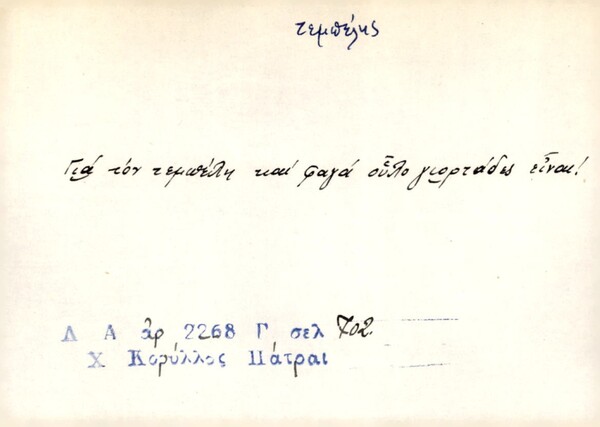 τεμπέλης
Γιά τόν τεμπέλη καί φαγά οὖλο γιορτάδες εἶναι!
Λ Α ἀρ 2268 Γ σελ 702.
Χ Κορύλλος Πάτραι